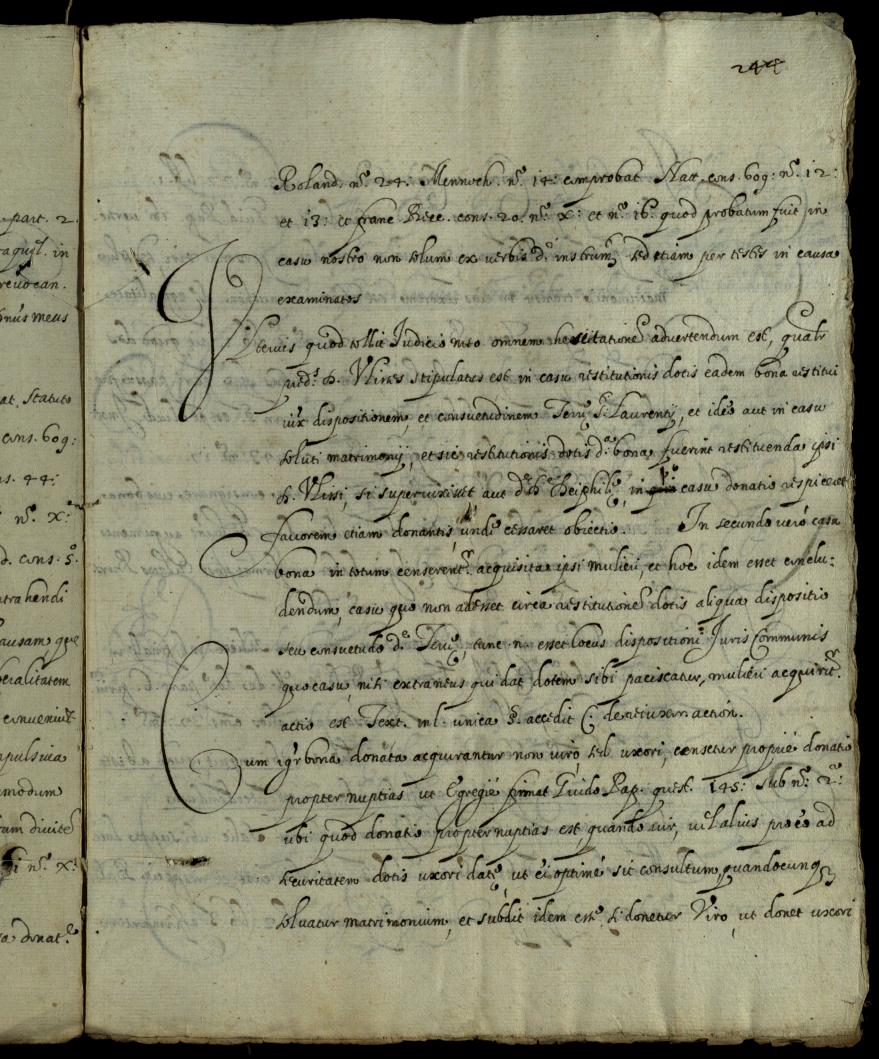 244
part. 2.
in
revocan.
meus
at. Statuto
cons. 609:
s. 44:
nº. X:
cons. 5.
trahendi
ausam, que
cialitatem
conveniut
apulsiva
modum
tum divite
nº. X:
a donat.e
Roland. nº. 24: Mennoch. nº. 14: comprobat Natt. cons. 609: nº. 12:
et 13: et franc Bicc. cons. 20. nº. X: et nº. 16. quod probatum fuit in
casu nostro non solum ex verbis d.i instrum. sed etiam per testes in causa
examinatos
Illevis quod tollit Judicio meo omnem hesitatione advertendum est, qualr
pred.s d. Vlisses stipulatus est in casu restitutionis dotis eadem bona restitui
iux dispositionem, et consuetudinem Terre S. Laurentij, et ideo aut in casu
soluti matrimonij, et sic restitutionis dotis d.a bona fuerint restituenda ipsi
d. Vlissi, si supervixisset aut d.e d. Theiphile, in quo casu donatio respiceret
favorem etiam donantis, unde cessaret obiectio. In secundo vero casu
bona in totum censerent.r acquisita ipsi mulieri, et hoc idem esset conclu:
dendum, casu quo non adesset circa restitutione dotis aliqua dispositio
seu consuetudo d.e Terre, tunc n. esset locus dispositioni Juris Communis
quo casu, nisi extraneus qui dat dotem sibi paciscatur, mulieri acquirit.r
actio est Text. in l. unica §. accedit C. de rei uxor action.
Cum igr bona donata acquirantur non viro sed uxori, censetur proprie donatio
propter nuptias ut Egregie firmat Guido Pap. quest. 145: sub nº. 2.º:
ubi quod donatio propter nuptias est, quando vir, vel alius pro eo ad
securitatem dotis uxori date, ut ei optime sit consultum quandocunq
solvatur matrimonium, et subdit idem esse si donetur Viro, ut donet uxori